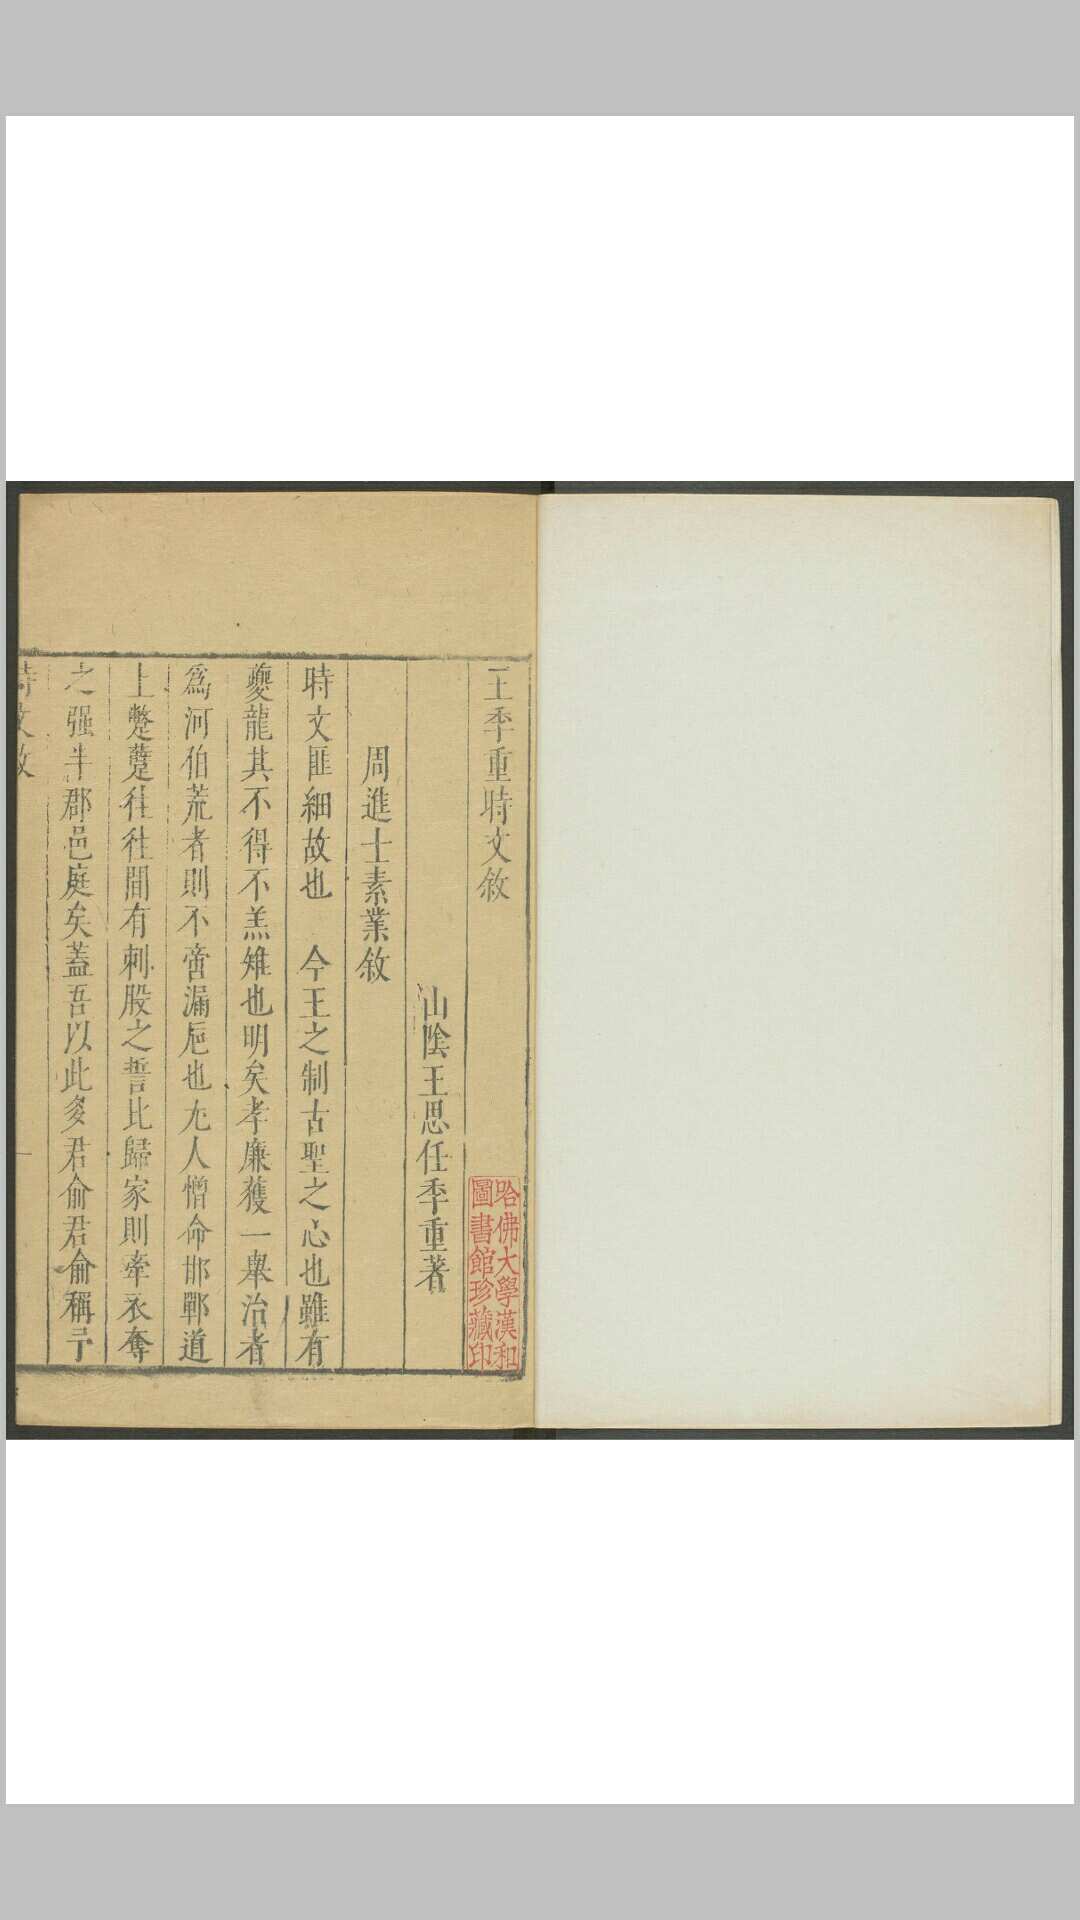 王季重時文敘
山陰王思任季重著
周進士素業敘
時文匪細故也　今王之制古聖之心也雖有
夔龍其不得不羔雉也明矣孝廉獲一舉治者
爲河伯荒者則不啻漏巵也尤人憎命邯鄲道
上蹩躠徃徃間有刺股之誓比歸家則牽衣奪
之强半郡邑庭矣蓋吾以此多君侖君侖稱予
時文敘
哈佛大學漢和
圖書館珍藏印